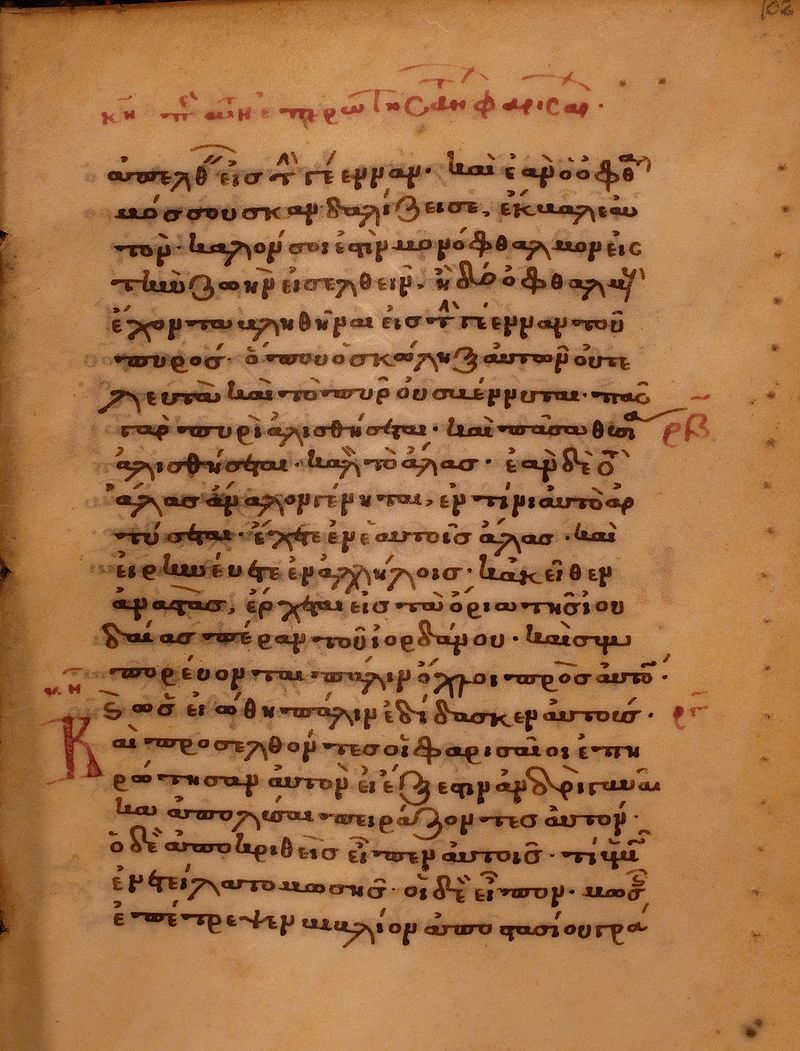 ἀπελθεῖν εἰς τὴν γέενναν· καὶ ἐὰν ὁ ὀφθαλ
μός σου σκανδαλίζει σε, ἔκβαλε αὐ
τὸν· καλόν σοι ἐστὶν μονόφθαλμον εἰς
τὴν ζωὴν εἰσελθεῖν. ἢ δύο ὀφθαλμοὺς
ἔχοντα βληθῆναι εἰς τὴν γέενναν τοῦ
πυρός· ὅπου ὁ σκώληξ αὐτῶν οὐ τε
λευτᾶ καὶ τὸ πῦρ οὐ σβέννυται· πᾶς
γὰρ πυρὶ ἁλισθήσεται· καὶ πᾶσα θυσία
ρϟβ
ἁλισθήσεται· καλὸν τὸ ἅλας· ἐὰν δὲ τὸ
ἅλας ἄναλον γένηται, ἐν τίνι αὐτὸ ἀρ
τύσεται· ἔχετε ἐν ἑαυτοῖς ἅλας· καὶ
εἰρηνεύετε ἐν ἀλλήλοις· κἀκεῖθεν
ἀναστὰς, ἔρχεται εἰς τὰ ὅρια τῆς ἰου
δαίας πέραν τοῦ ἰορδάνου· καὶ συμ
πορεύονται πάλιν ὄχλοι πρὸς αὐτόν·
ὡς εἰώθη πάλιν ἐδίδασκεν αὐτούς·
Καὶ προσελθόντες οἱ φαρισαῖοι ἐπη
ρώτησαν αὐτὸν εἰ ἔξεστιν ἀνδρὶ γυναῖ
κα ἀπολῦσαι πειράζοντες αὐτόν·
ὁ δὲ ἀποκριθεὶς εἶπεν αὐτοῖς· τί ὑμῖν
ἐνετείλατο μωσῆς· οἱ δὲ εἶπον· μωσῆς
ἐπέτρεψεν βιβλίον ἀποστασίου γρά